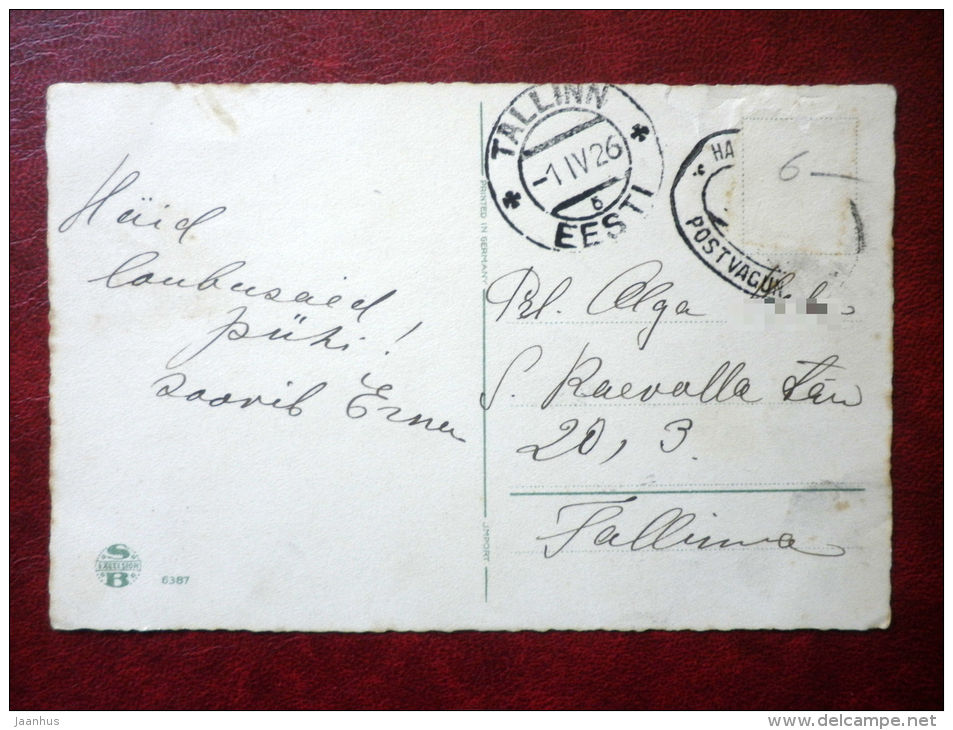 Häid
loubusaid
pühi!
soovib Erna
EXCELSIOR
S
B
6387
PRINTED IN GERMANY
IMPORT
TALLINN
-1 IV 26
6
EESTI
HA
POSTVAGUN
6—
Prl. Olga
S. Kaevalla tän
20, 3.
Tallinna
jaanhus
www.delcampe.net